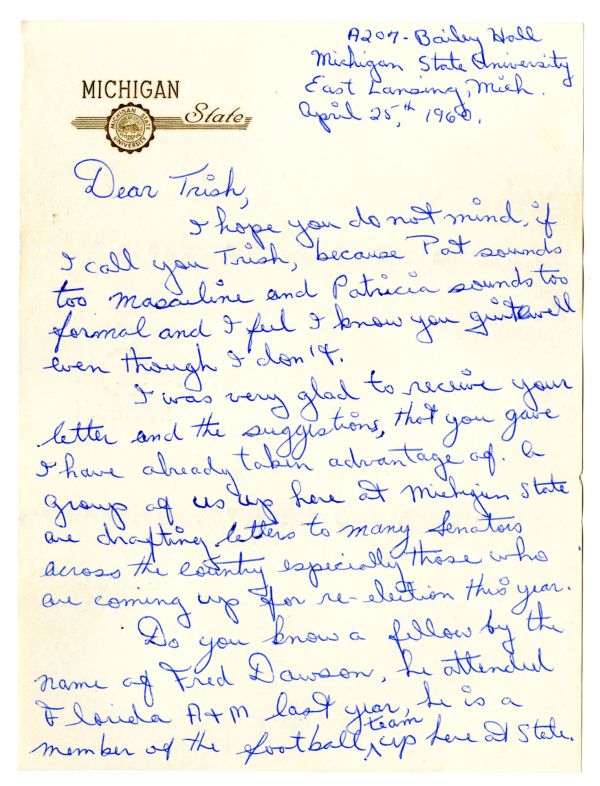 A207-Bailey Hall
Michigan State University
East Lansing, Mich.
April 25,th 1960.
MICHIGAN
State
MICHIGAN STATE
UNIVERSITY
Dear Trish,
I hope you do not mind, if
I call you Trish, because Pat sounds
too masculine and Patricia sounds too
formal and I feel I know you quite well
even though I don't.
I was very glad to receive your
letter and the suggestions, that you gave
I have already taken advantage of. A
group of us up here at Michigan State
are drafting letters to many Senators
across the country especially those who
are coming up for re-election this year.
Do you know a fellow by the
name of Fred Dawson, he attended
Florida A+M last year, he is a
member of the football team up here at State.